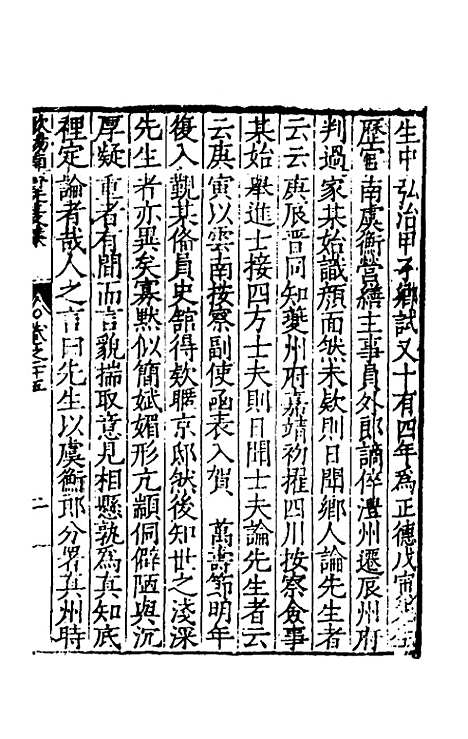 生中弘治甲子鄉試又十有四年為正德戊寅先生
歷官南虞衡營繕主事員外郎謫倅澧州遷辰州府
判過家某始識顏面然未欵則日聞鄉人論先生者
云云庚辰晋同知夔州府嘉靖初擢四川按察僉事
某始舉進士接四方士夫則日聞士夫論先生者云
云庚寅以雲南按察副使函表入賀　萬壽節明年
復入覲某偹員史舘得欵聴京邸然後知世之淺深
先生者亦異矣寡默似簡斌媚形亢顓侗僻陋與沉
厚凝重者有間而言貌揣取意見相懸孰為真知底
裡定論者哉人之言曰先生以虞衡郎分署真州時
卷之二十五
二